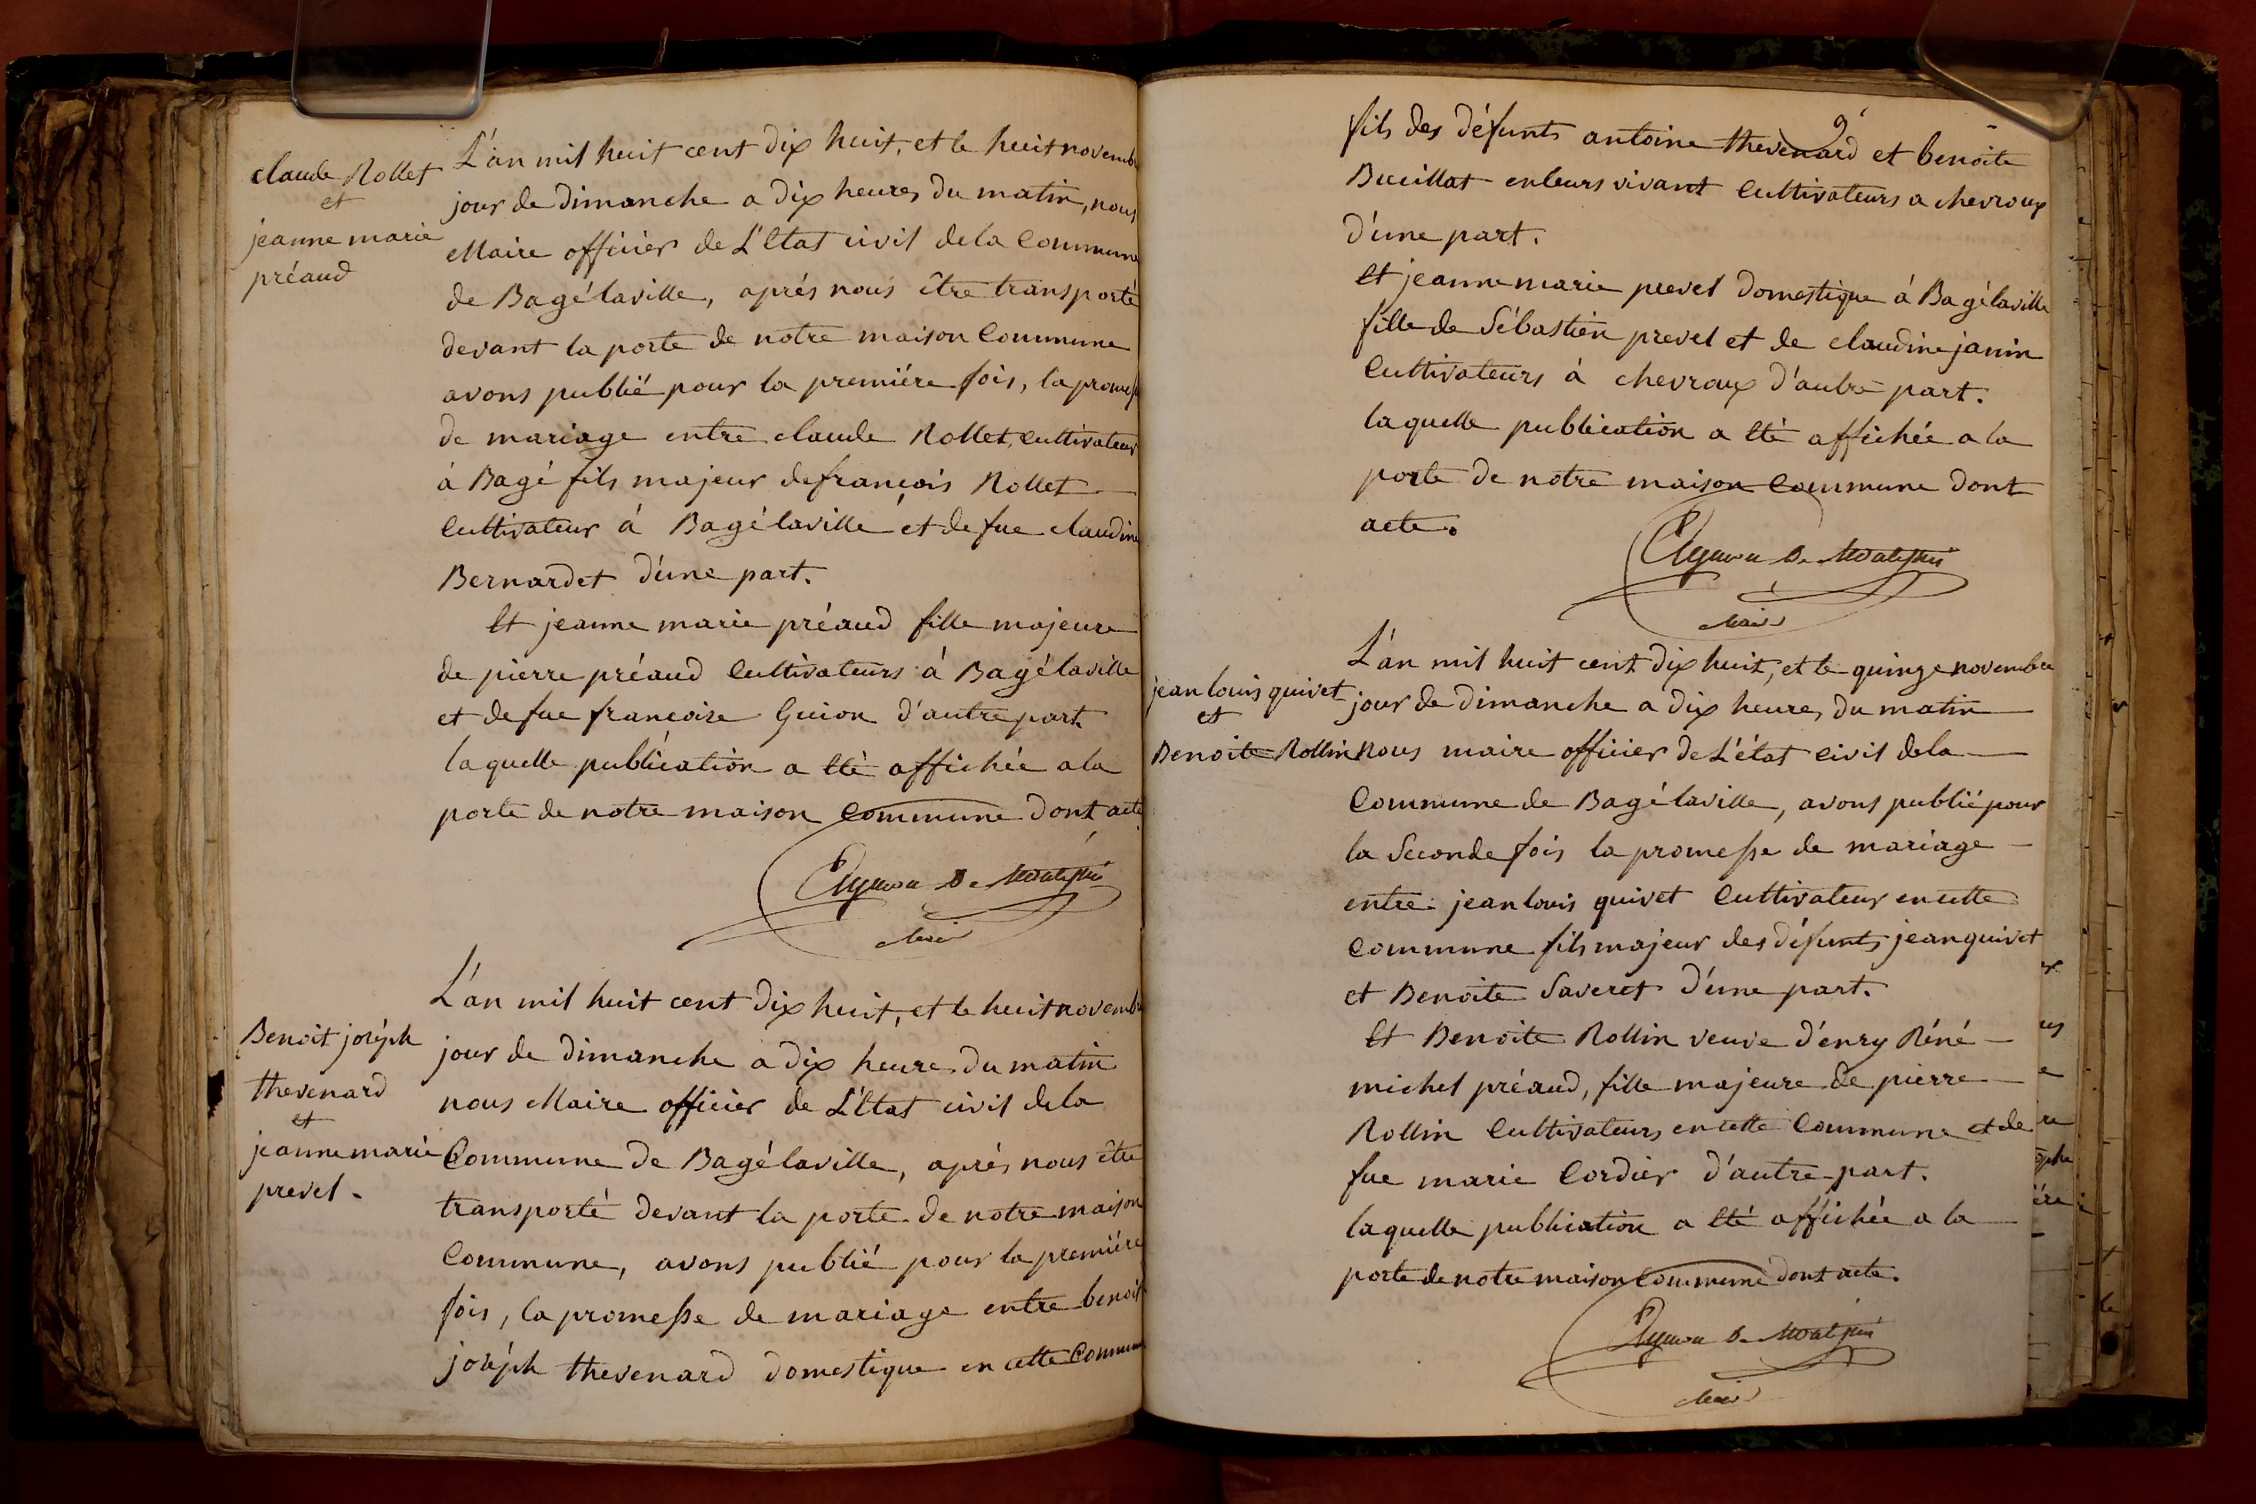 claude Rollet
et
jeanne marie
préaud
L'an mil huit cent dix huit, et le huit novemb
jour de dimanche a dix heures du matin, nous
Maire officier de L'Etat civil de la Commune
de Bagélaville, aprés nous être transporté
devant la porte de notre maison Commune
avons publié pour la premiére fois, la promess
de mariage entre claude Rollet, Cultivateur
à Bagé fils majeur de françois Rollet
Cultivateur á Bagélaville et de fue claudine
Bernardet d'une part.
Et jeanne marie préaud fille majeure
de pierre préaud Cultivateurs à Bagélaville
et de fue francoise Guion d'autre part.
laquelle publication a Eté affichée a la
porte de notre maison Commune dont acte
De
Maire
Benoit joséph
thevenard
et
jeanne marie
prevel.
L'an mil huit cent dix huit, et le huit novemb
jour de dimanche a dix heures du matin
nous Maire officier de L'Etat civil de la
Commune de Bagélaville, aprés nous être
transporté devant la porte de notre maison
Commune, avons publié pour la premiére
fois, la promesse de mariage entre benoit
joséph thevenard domestique en cette Commun
9
fils des défunts antoine thevenard et benoite
Buillat en leurs vivant Cultivateurs a chevroux
d'une part.
Et jeanne marie prevel domestique á Bagélaville
fille de Sébastien prevel et de claudine janin
Cultivateurs à chevroux d'autre part.
laquelle publication a Eté affichée a la
porte de notre maison Commune dont
acte.
De
Maire
jean louis quivet
et
Benoite Rollin
L'an mil huit cent dix huit, et le quinze novembre
jour de dimanche a dix heures du matin
Nous maire officier de L'état civil de la
Commune de Bagélaville, avons publié pour
la Seconde fois la promesse de mariage
entre jean louis quivet Cultivateur en cette
Commune fils majeur des défunts jean quivet
et Benoite Saveret d'une part.
Et Benoite Rollin veuve d'énry Réné
michel préaud, fille majeure de pierre
Rollin Cultivateurs en cette Commune et de
fue marie Cordier d'autre part.
laquelle publication a Eté affichée a la
porte de notre maison Commune dont acte.
De
Maire